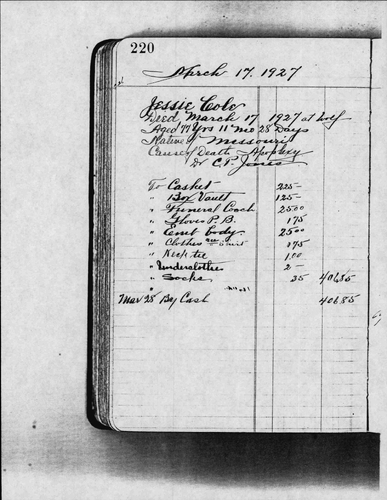 220
March 17. 1927
Jessie Cole
Died March 17 1927 at
Aged 77 Yrs 11 Mo 28 Days
Native of Missouri
Cause of Death Apoplexy
Dr C. P. Jones
To Casket 225-
" Box Vault 125-
" Funeral Coach 2500
" Gloves P. B. 175
" Emb Body 2500
" Clothes 175
" Neck tie 1.00
" Underclothes 2-
" Socks 35 40685
Mar 28 By Cash 40685